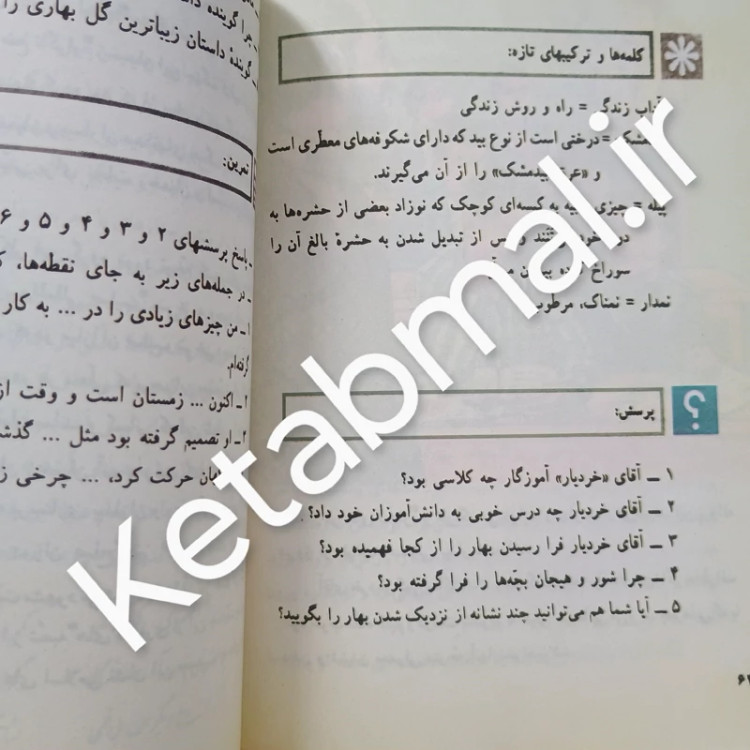 کلمه‌ها و ترکیبهای تازه:
آداب زندگی = راه و روش زندگی
= درختی است از نوع بید که دارای شکوفه‌های معطّری است
و «عرق بیدمشک» را از آن می‌گیرند.
پیله = چیزی شبیه به کیسه‌ای کوچک که نوزاد بعضی از حشره‌ها به
دور خود و پس از تبدیل شدن به حشرهٔ بالغ آن را
سوراخ
نمدار = نمناک، مرطوب
پرسش:
۱ ــ آقای «خردیار» آموزگار چه کلاسی بود؟
۲ ــ آقای خردیار چه درس خوبی به دانش‌آموزان خود داد؟
۳ ــ آقای خردیار فرا رسیدن بهار را از کجا فهمیده بود؟
۴ ــ چرا شور و هیجان بچّه‌ها را فرا گرفته بود؟
۵ ــ آیا شما هم می‌توانید چند نشانه از نزدیک شدن بهار را بگویید؟
ــ چرا گویندهٔ
ــ گویندهٔ داستان زیباترین گل بهاری را
تمرین:
ــ پاسخ پرسشهای ۲ و ۳ و ۴ و ۵ و ۶
ــ در جمله‌های زیر به جای نقطه‌ها،
۱ ــ من چیزهای زیادی را در ... به کار
گرفته‌ام.
ــ اکنون ... زمستان است و وقت
تصمیم گرفته بود مثل ...
حرکت کرد، ... چرخی
Ketabmal.ir